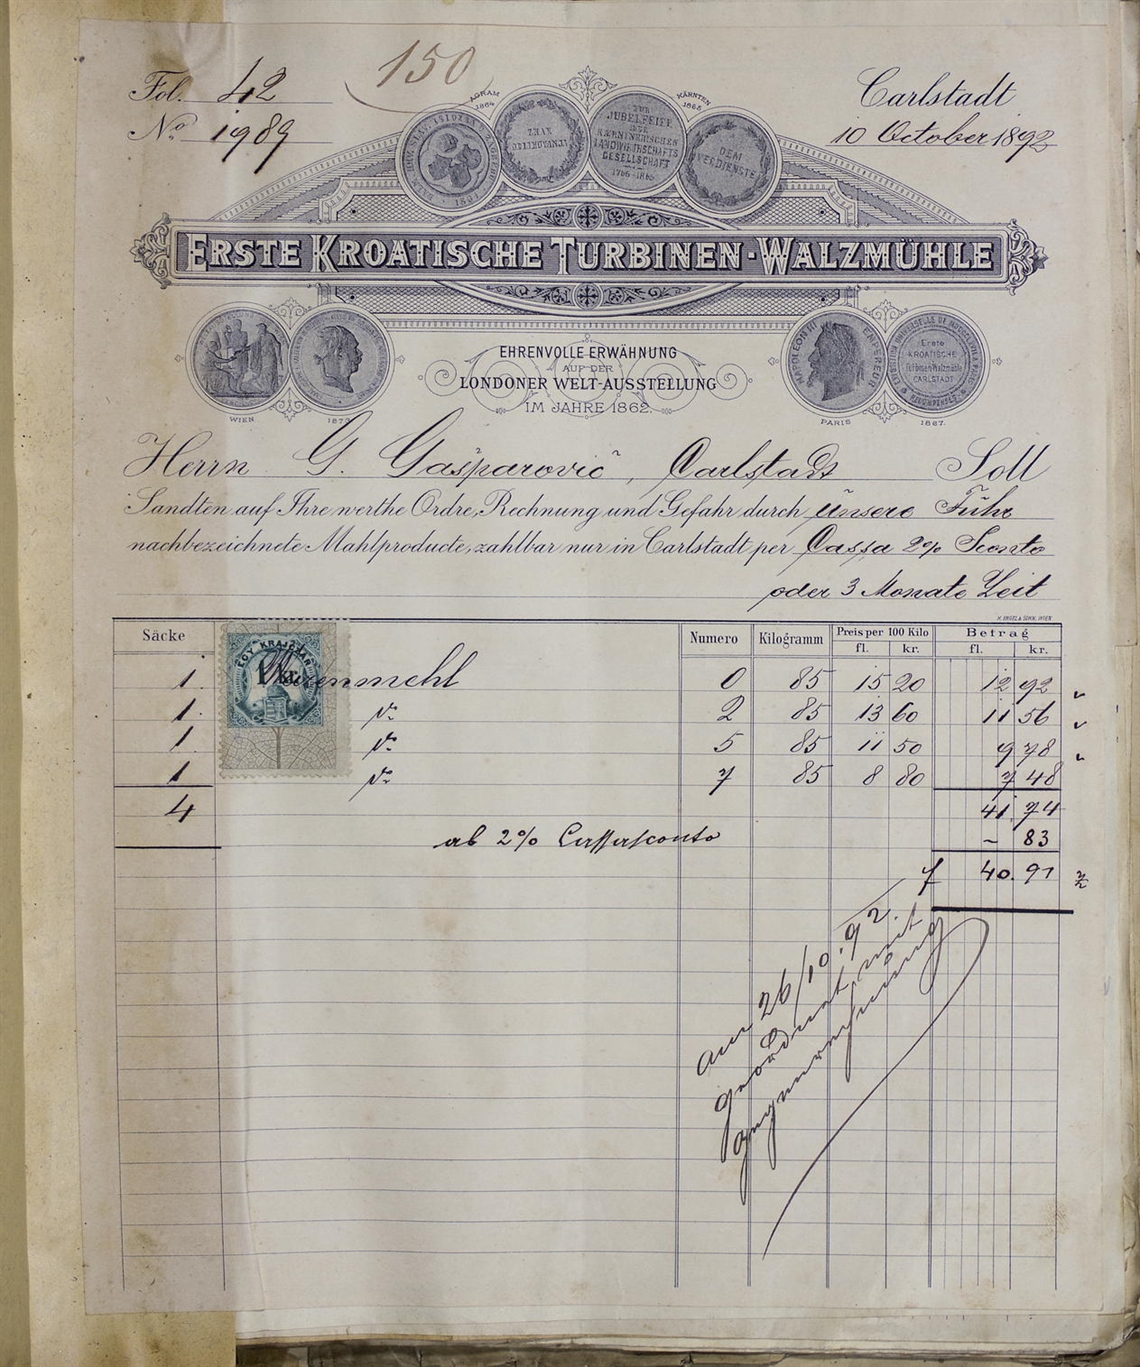 150
Fol. 42
No 1989
Carlstadt
10 October 1892
AGRAM 1864
KÄRNTEN 1865
ZNAK ODLIKOVANJA
ZUR JUBELFEIER DER KAERNTNERISCHEN LANDWIRTHSCHAFTS GESELLSCHAFT 1765-1865
DEM VERDIENSTE
ERSTE KROATISCHE TURBINEN-WALZMÜHLE
EHRENVOLLE ERWÄHNUNG
AUF DER
LONDONER WELT-AUSSTELLUNG
IM JAHRE 1862.
NAPOLEON III EMPEREUR
Erste KROATISCHE Turbinen-Walzmühle CARLSTADT
WIEN 1873
PARIS 1867.
Herrn G. Gašparović, Carlstadt Soll
Sandten auf Ihre werthe Ordre, Rechnung und Gefahr durch unsere Fuhr
nachbezeichnete Mahlproducte, zahlbar nur in Carlstadt per Cassa 2% Sconto
oder 3 Monate Zeit
H. ENGEL & SOHN, WIEN
Säcke Numero Kilogramm Preis per 100 Kilo Betrag
fl. kr. fl. kr.
EGY KRAJCZÁR
1 kr.
1. Weizenmehl 0 85 15 20 12 92
1. do 2 85 13 60 11 56
1. do 5 85 11 50 9 78
1 do 7 85 8 80 7 48
4 41. 74
ab 2% Cassasconto – 83
f 40. 91
am 26/10. 92
geordnet mit
gegenrechnung